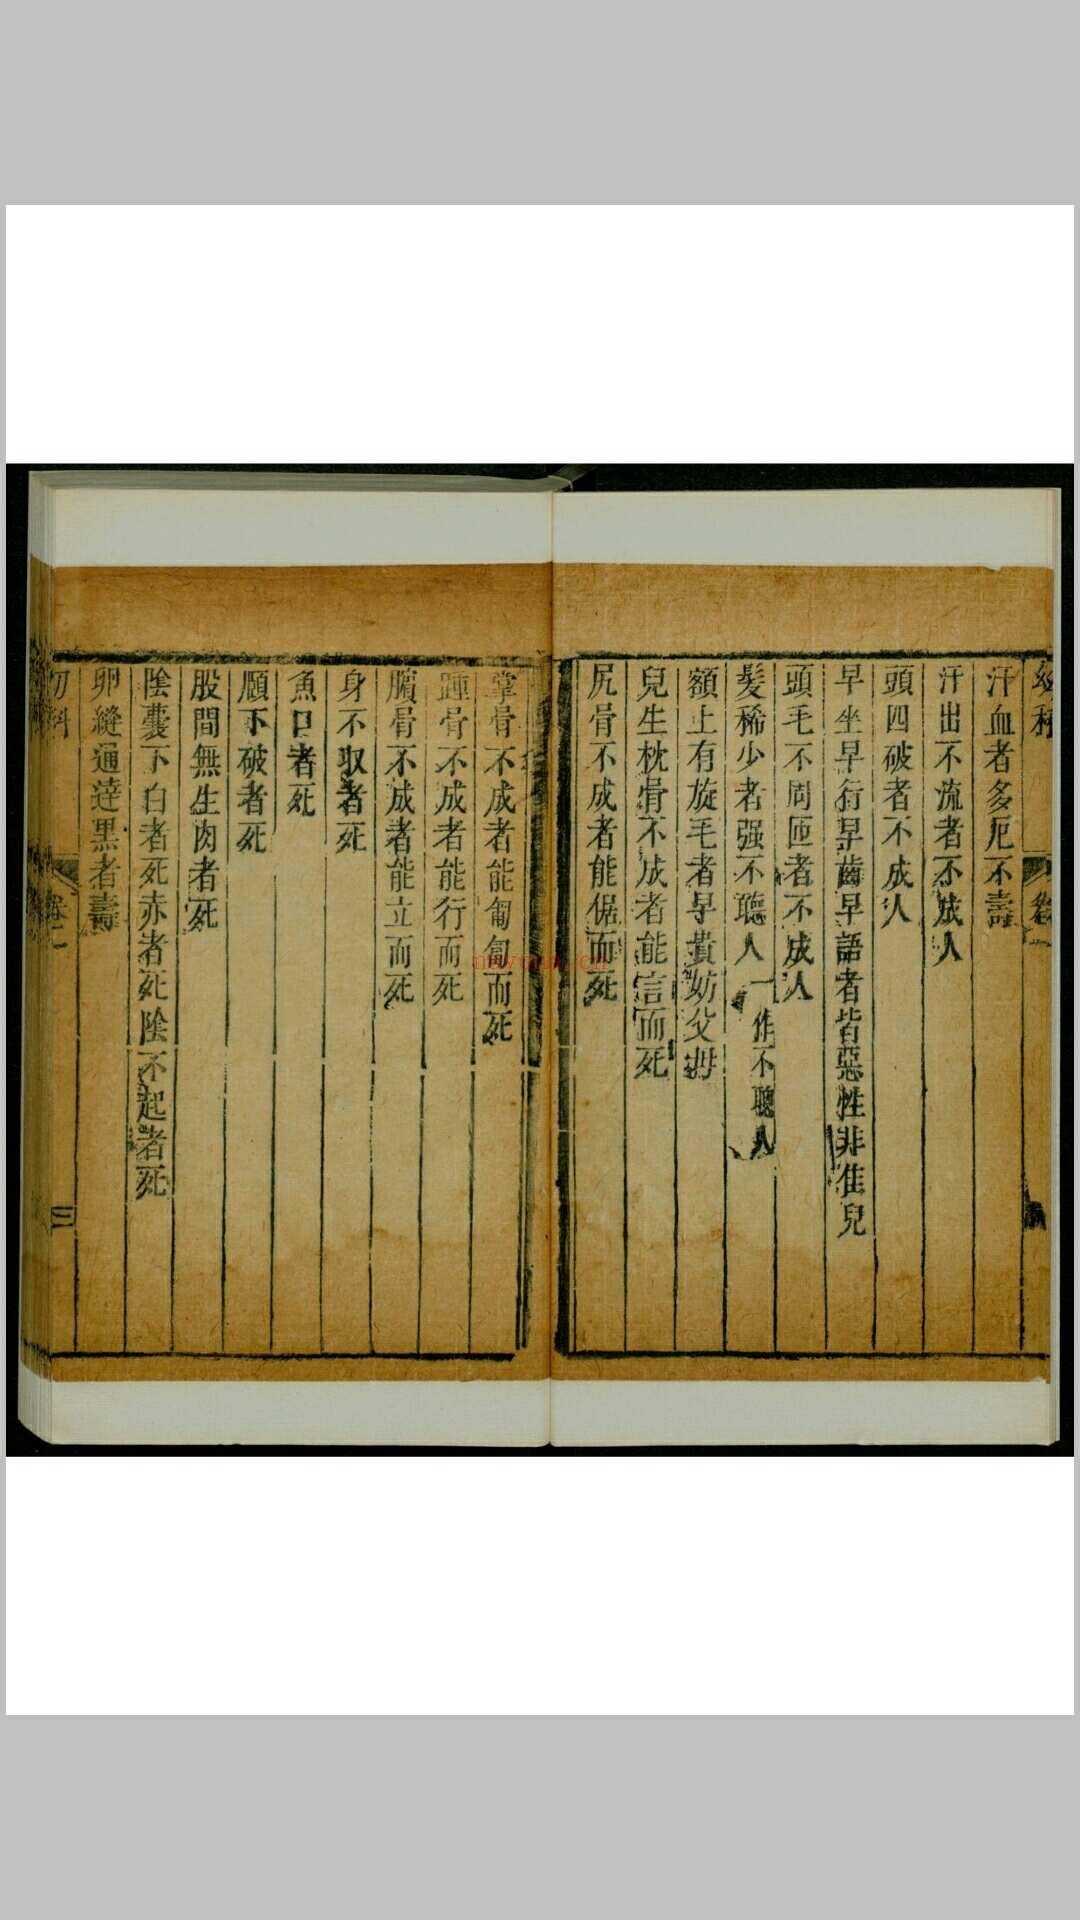 幼科
卷二
汗血者多厄不壽
汗出不流者不成人
頭四破者不成人
早坐早行早齒早語者皆惡性非佳兒
頭毛不周匝者不成人
髮稀少者强不聽人一作不聰人
額上有旋毛者早貴妨父毋
兒生枕骨不成者能言而死
尻骨不成者能倨而死
掌骨不成者能匍匐而死
踵骨不成者能行而死
臏骨不成者能立而死
身不収者死
魚口者死
顖下破者死
股間無生肉者死
陰囊下白者死赤者死陰不起者死
卵縫通達黒者壽
幼科
卷二
三